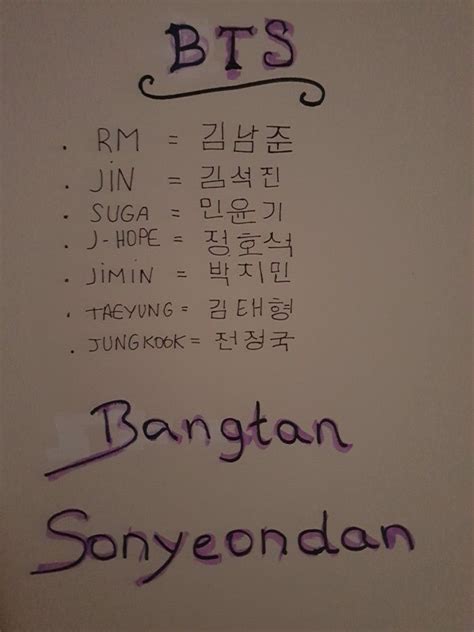 BTS
. RM = 김남준
. JIN = 김석진
. SUGA = 민윤기
. J-HOPE = 정호석
. JiMIN = 박지민
. TAEYUNG = 김태형
. JUNGKOOK = 전정국
Bangtan
Sonyeondan